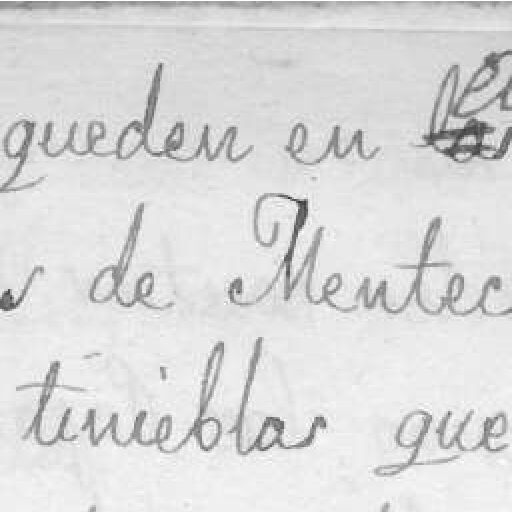 queden en
de Mentec
tinieblas que